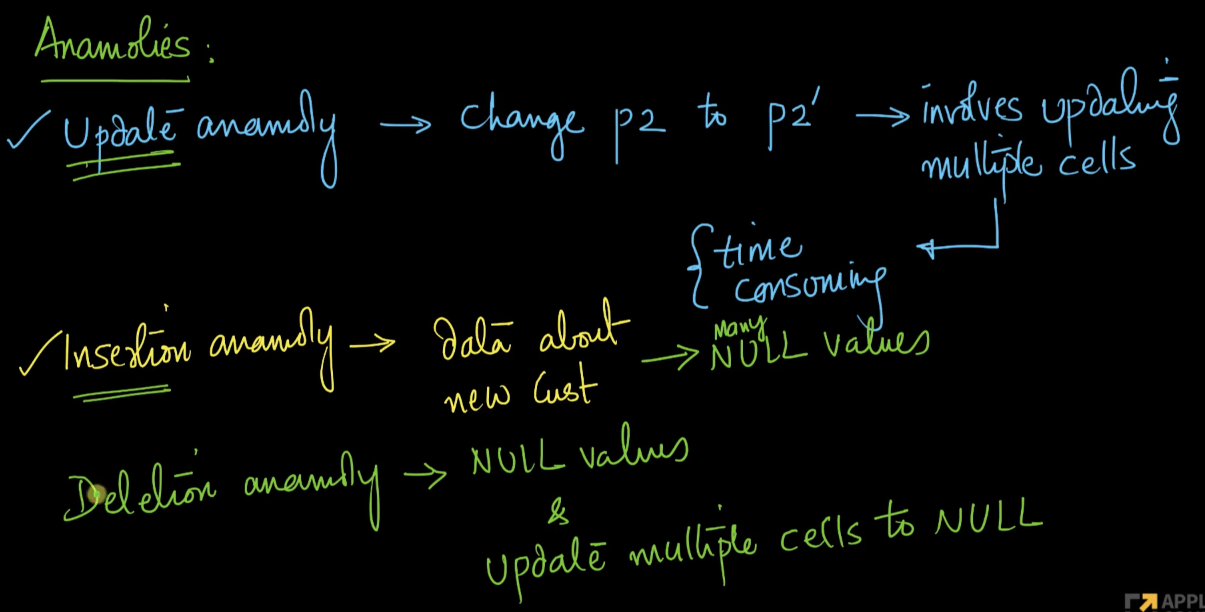 Anamolies :
✓ Update anamoly → change p2 to p2' → involves updating
multiple cells
{ time
consoming
✓ Insertion anamoly → data about → Many NULL values
new Cust
Deletion anamoly → NULL values
&
update multiple cells to NULL
APPL